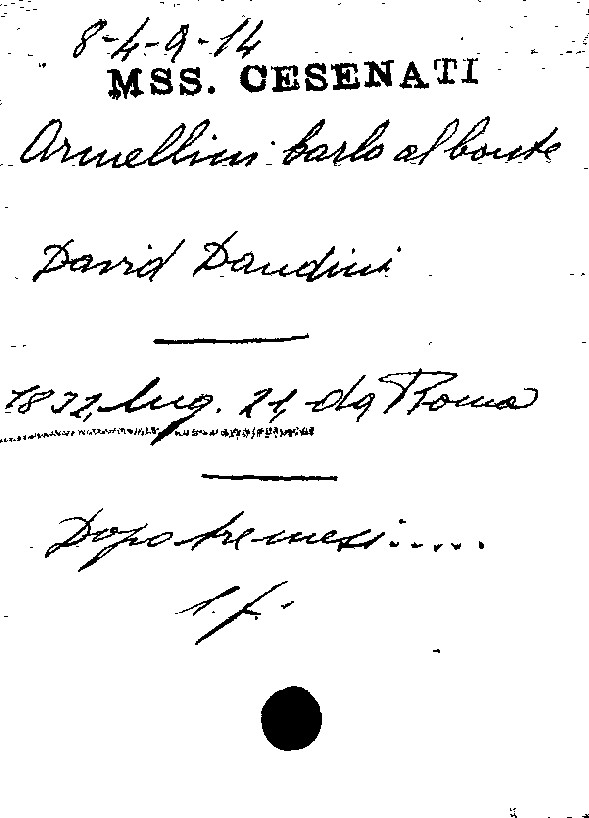 8-4-9-14
MSS. CESENATI
Armellini Carlo al Conte
David Dandini
1832, lug. 21, da Roma
Dopo tre mesi.....
1. f.